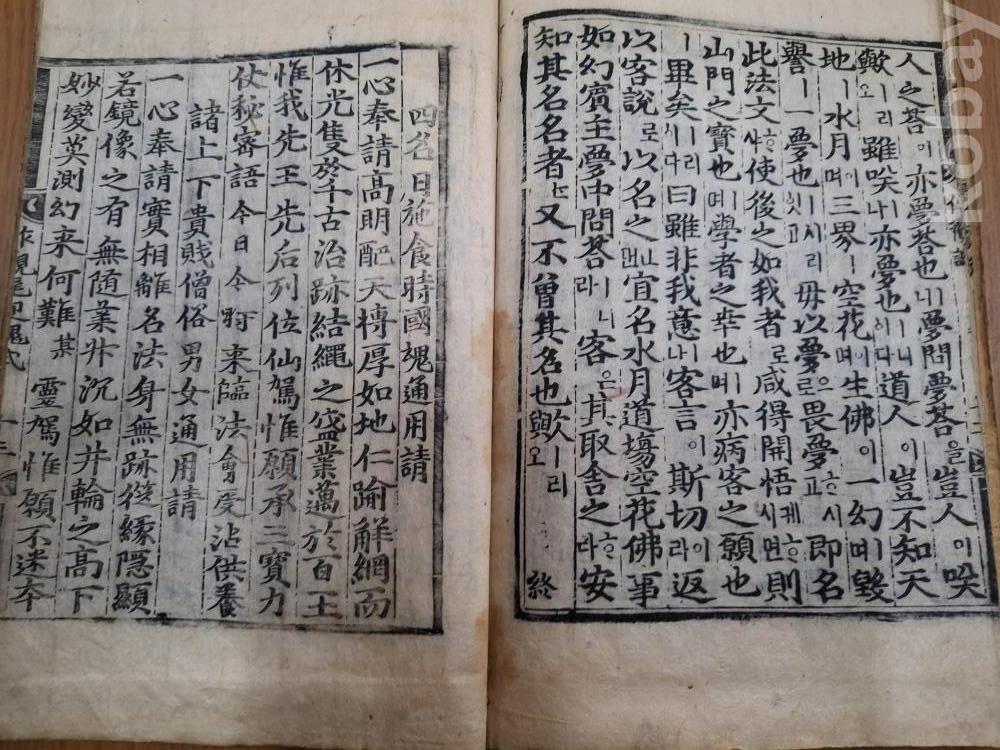 人之荅이亦夢荅也ㅣ니夢問夢荅을豈人이唉
歟ㅣ리오雖唉나亦夢也ㅣ니이다道人이豈不知天
地ㅣ水月이며三界ㅣ空花ㅣ며生佛이一幻이며毀
譽ㅣ一夢也ㅣ시리잇고毋以夢으로畏夢ᄒᆞ시고即名
此法文ᄒᆞ샤使後之如我者로咸得開悟케ᄒᆞ시면則
山門之寶也ㅣ며學者之幸也ㅣ며亦病客之願也
ㅣ畢矣리이다曰雖非我意나客言이斯切이라返
以客說로以名之ㄴ댄宜名水月道塲空花佛事
如幻賓主夢中問荅이라ㅣ니客은其取舍之ᄒᆞ라安
知其名名者ㅣ又不曾其名也歟ㅣ리오 終
四名日施食時國魂通用請
一心奉請高明配天博厚如地仁踰解網而
休光隻於千古治跡結繩之盛業邁於百王
惟我先王先后列位仙駕惟願承三寶力
仗秘密語今日今時來臨法會受沾供養
諸上下貴賤僧俗男女通用請
一心奉請實相離名法身無跡從緣隱顯
若鏡像之有無隨業升沉如井輪之高下
妙變莫測幻來何難某靈駕惟願不迷本